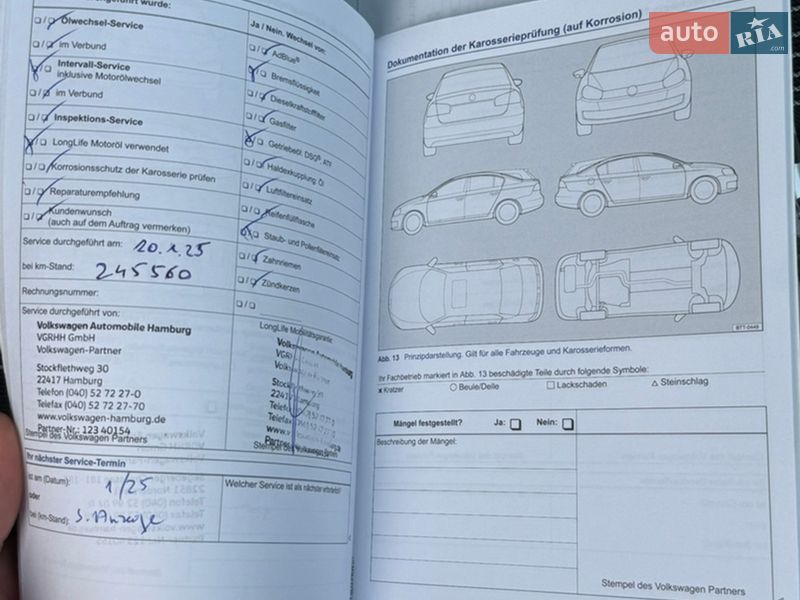 wurde:
Ölwechsel-Service
im Verbund
Intervall-Service
inklusive Motorölwechsel
im Verbund
Inspektions-Service
LongLife Motoröl verwendet
Korrosionsschutz der Karosserie prüfen
Reparaturempfehlung
Kundenwunsch
(auch auf dem Auftrag vermerken)
Service durchgeführt am: 20.1.25
bei km-Stand: 245560
Rechnungsnummer:
Service durchgeführt von:
Volkswagen Automobile Hamburg
VGRHH GmbH
Volkswagen-Partner
Stockflethweg 30
22417 Hamburg
Telefon (040) 52 72 27-0
Telefax (040) 52 72 27-70
www.volkswagen-hamburg.de
Partner-Nr.: 123 40154
Stempel des Volkswagen Partners
Ihr nächster Service-Termin
ist am (Datum): 1/25
oder
bei (km-Stand): S. Anzeige
Ja / Nein, Wechsel von:
AdBlue®
Bremsflüssigkeit
Dieselkraftstofffilter
Gasfilter
Getriebeöl: DSG®, ATF
Haldexkupplung: Öl
Luftfiltereinsatz
Reifenfüllflasche
Staub- und Pollenfiltereinsatz
Zahnriemen
Zündkerzen
LongLife Mobilitätsgarantie:
Stempel des Volkswagen Partners
Welcher Service ist als nächster erforderlich?
Dokumentation der Karosserieprüfung (auf Korrosion)
auto RIA .com
B7T-0449
Abb. 13 Prinzipdarstellung. Gilt für alle Fahrzeuge und Karosserieformen.
Ihr Fachbetrieb markiert in Abb. 13 beschädigte Teile durch folgende Symbole:
x Kratzer ○ Beule/Delle □ Lackschaden △ Steinschlag
Mängel festgestellt? Ja: Nein:
Beschreibung der Mängel:
Stempel des Volkswagen Partners